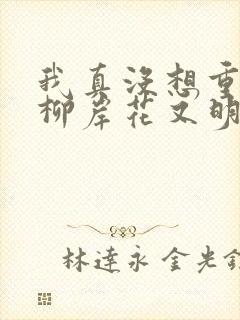 我真沒想重
柳岸花又明
林達永 金光